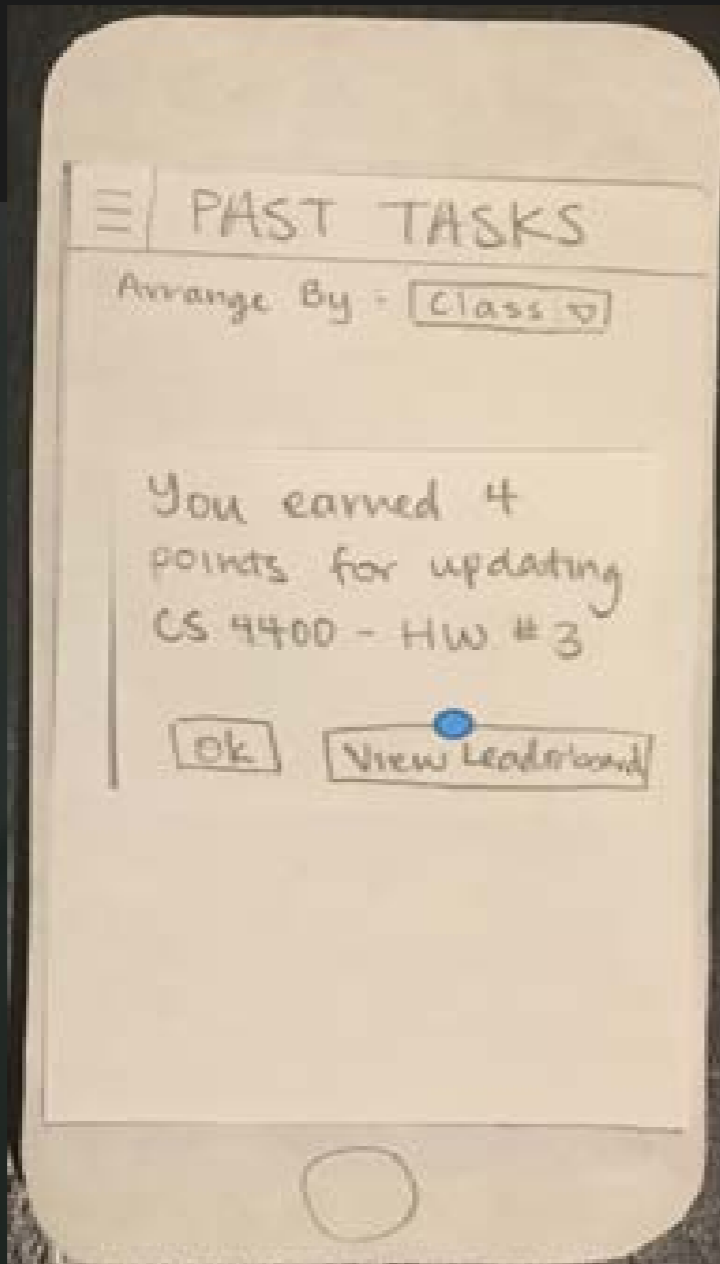 PAST TASKS
Arrange By - Class
You earned 4
points for updating
CS 4400 - HW #3
Ok View Leaderboard